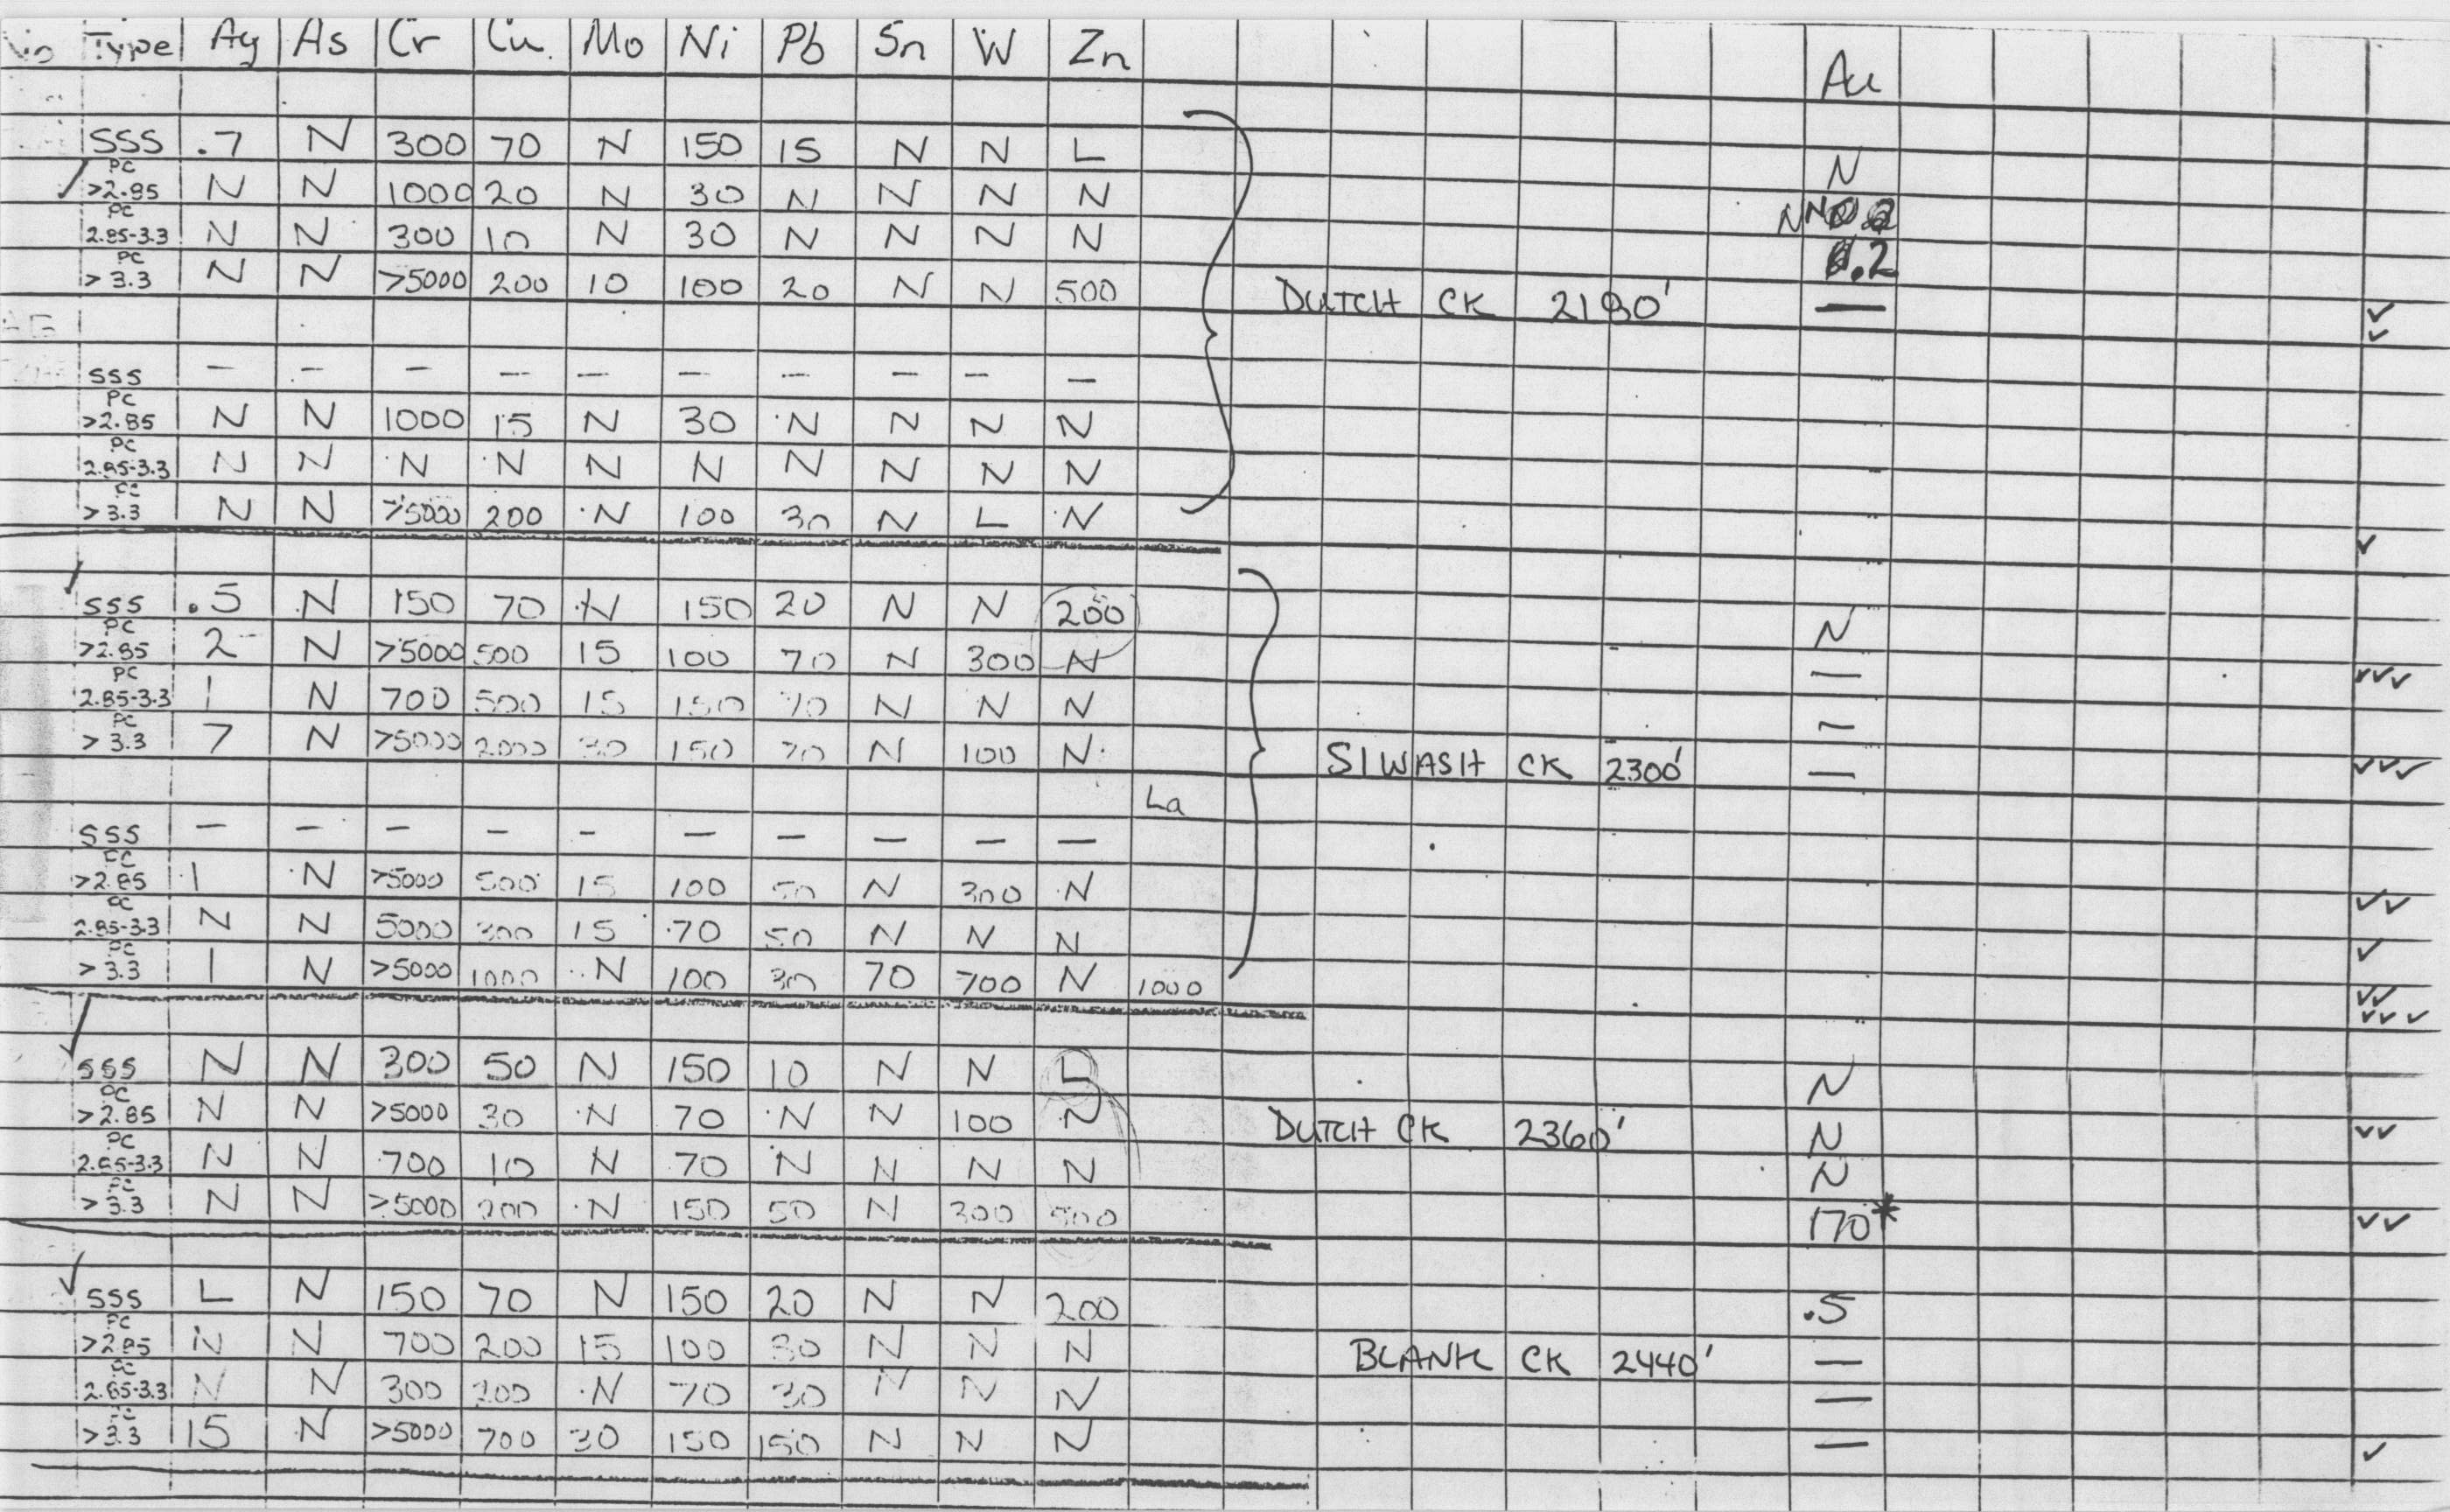 No Type Ag As Cr Cu Mo Ni Pb Sn W Zn Au
SSS .7 N 300 70 N 150 15 N N L N
PC >2.85 N N 1000 20 N 30 N N N N N
PC 2.85-3.3 N N 300 10 N 30 N N N N .2
PC >3.3 N N >5000 200 10 100 20 N N 500 DUTCH CK 2180' —
SSS — — — — — — — — — —
PC >2.85 N N 1000 15 N 30 N N N N
PC 2.85-3.3 N N N N N N N N N N
PC >3.3 N N >5000 200 N 100 30 N L N
SSS .5 N 150 70 N 150 20 N N 200 N
PC >2.85 2 N >5000 500 15 100 70 N 300 N —
PC 2.85-3.3 1 N 700 500 15 150 70 N N N —
PC >3.3 7 N >5000 2000 30 150 70 N 100 N SIWASH CK 2300' —
La
SSS — — — — — — — — — —
PC >2.85 1 N >5000 500 15 100 50 N 300 N
PC 2.85-3.3 N N 5000 300 15 70 50 N N N
PC >3.3 1 N >5000 1000 N 100 30 70 700 N 1000
SSS N N 300 50 N 150 10 N N L N
PC >2.85 N N >5000 30 N 70 N N 100 N DUTCH CK 2360' N
PC 2.85-3.3 N N 700 10 N 70 N N N N N
PC >3.3 N N >5000 200 N 150 50 N 300 500 170*
SSS L N 150 70 N 150 20 N N 200 .5
PC >2.85 N N 700 200 15 100 30 N N N BLANK CK 2440' —
PC 2.85-3.3 N N 300 200 N 70 30 N N N —
PC >3.3 15 N >5000 700 30 150 150 N N N —